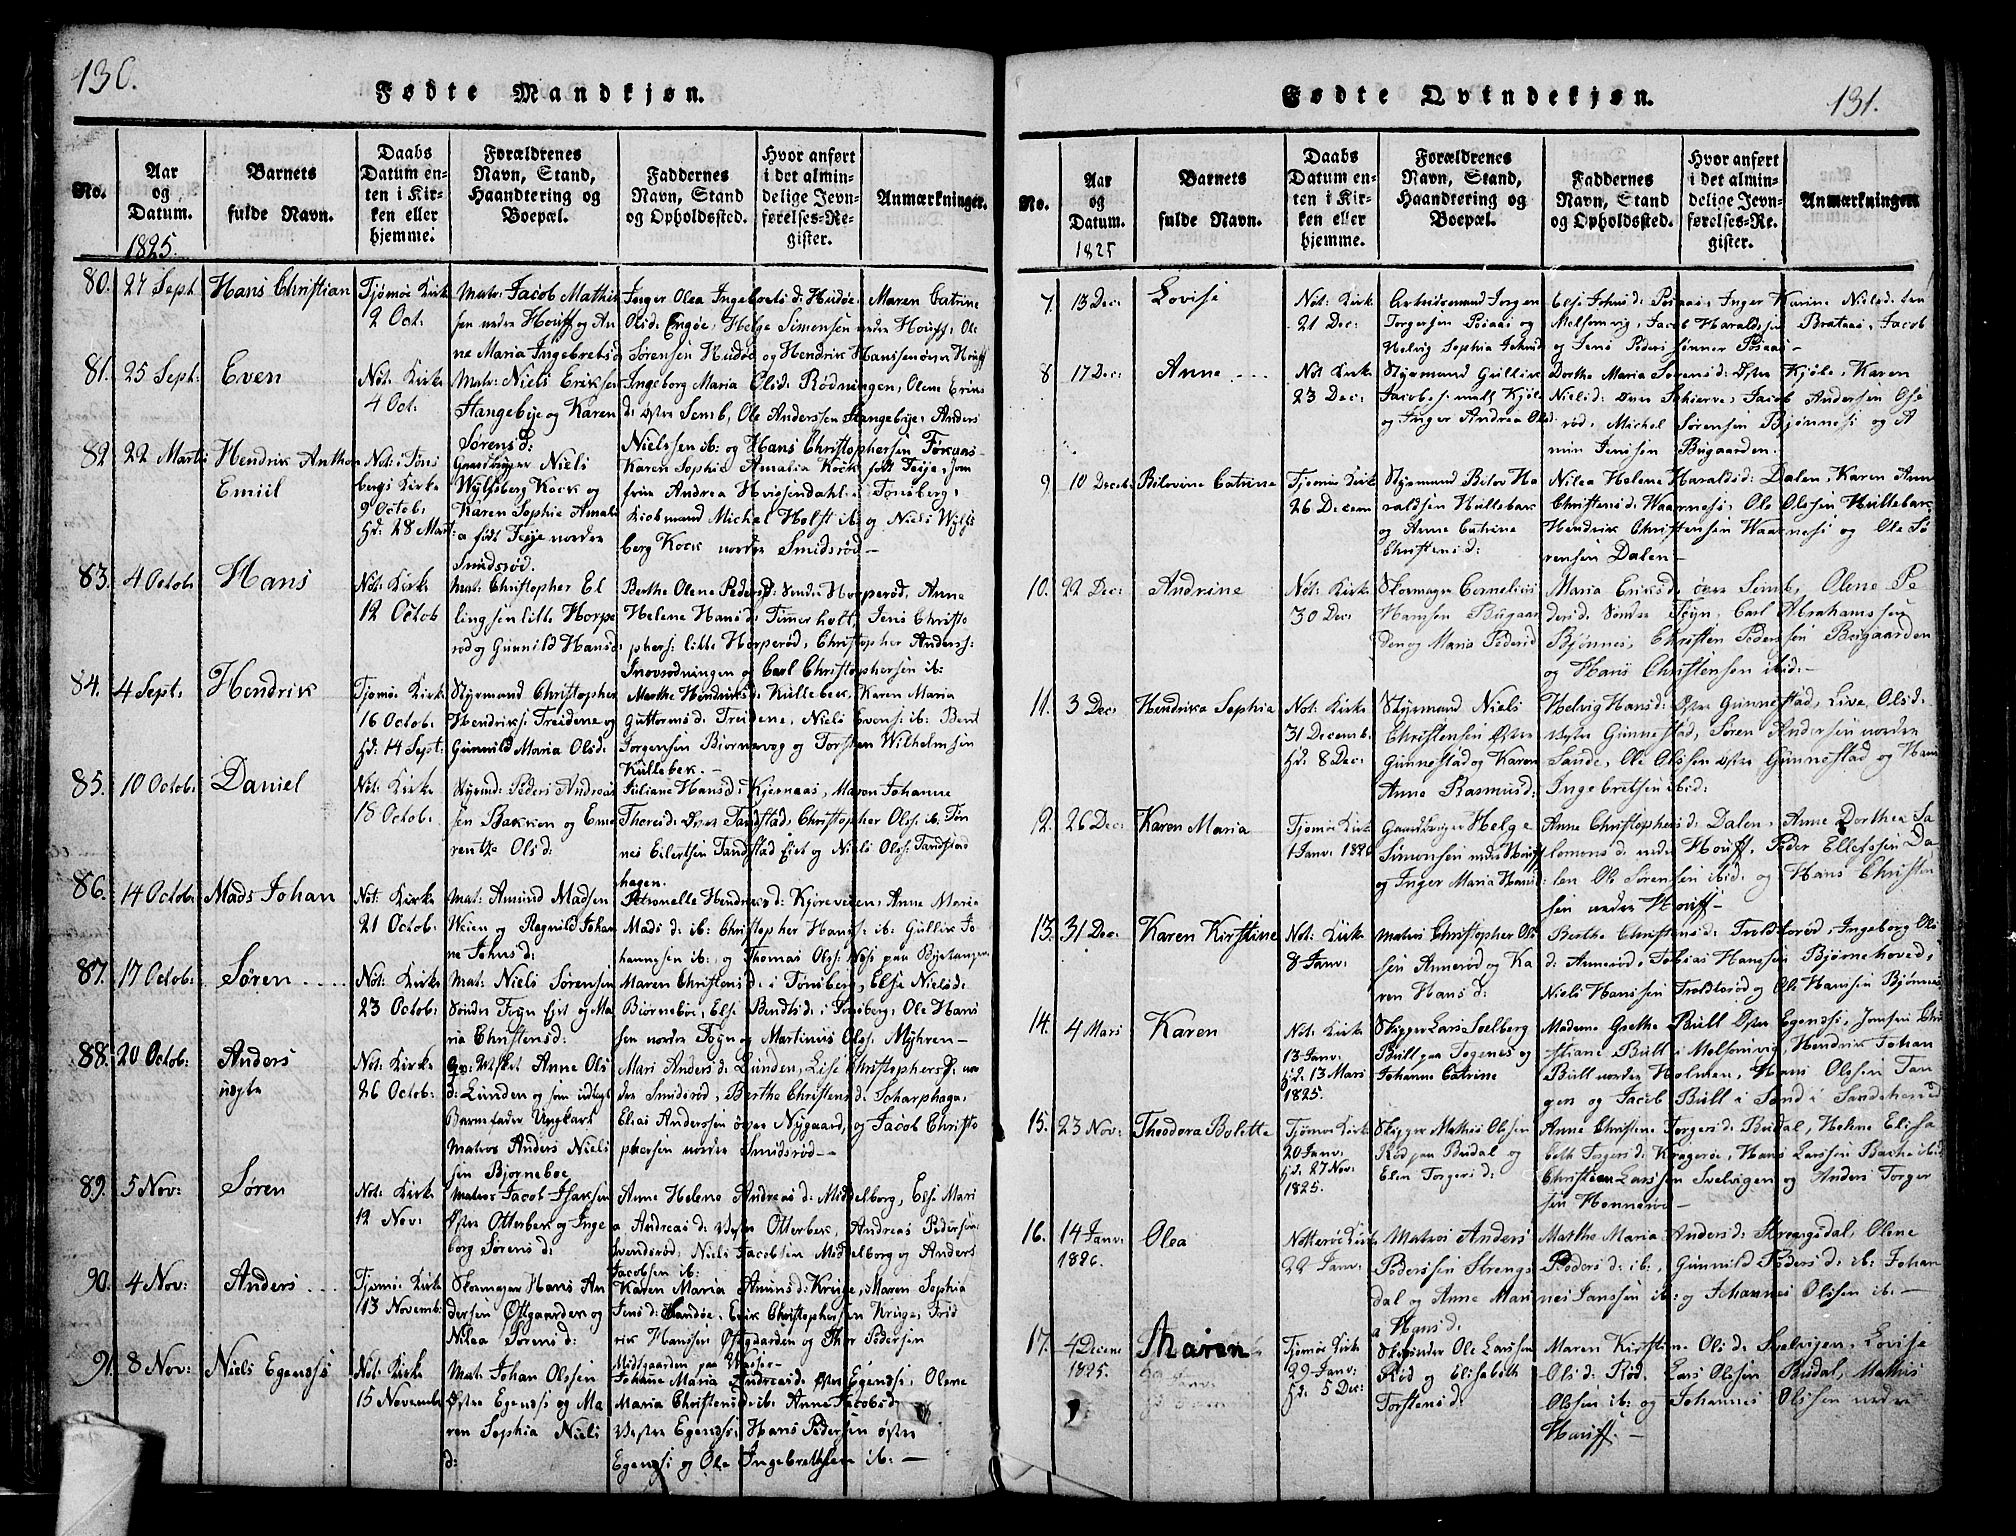 130.
Fødte Mandkjøn.
No.
Aar
og
Datum.
1825.
Barnets
fulde Navn.
Daabs
Datum en-
ten i Kir-
ken eller
hjemme.
Forældrenes
Navn, Stand,
Haandtering og
Boepæl.
Faddernes
Navn, Stand
og Opholdssted.
Hvor anført
i det almin-
delige Jevn-
førelses-Re-
gister.
Anmærkninger.
80. 27 Sept Hans Christian
Tjömöe Kirk
2 Oct.
Matr: Jacob Mathi
sen nedre Houff og An
ne Maria Ingebretsd
Inger Olea Ingebrets d: Hudöe, Maren Catrine
Olsd: Engöe, Helge Simonsen nedre Houff, Ole
Sörensen Hudöe og Hendrik Hanssen övre Houff
81. 25 Sept: Even
Nöt: Kirk
4 Oct.
Matr: Niels Eriksen
Hangebye og Karen
Sörens d:
Ingeborg Maria Olsd: Rödningen, Olene Erins
d: Östre Semb, Ole Anderssen Hangebye, Anders
Nielssen ib: og Hans Christophersen
82 22 Marti Hendrik Anthon
Emiil
Nöt: i Töns
bergs Kirke
9 Octob:
hd: 28 Mart:
Gaardbruger Niels
Wylfsberg Kock og
Karen Sophie Amali
a födt Feije nordre
Smidsröd.
Karen Sophie Amalia Kock födt Feije, Jom
frue Andrea Hvissendahl i Tönsberg,
Kiöbmand Michel Holst ib: og Niels Wylfs
berg Kock nordre Smidsröd —
83. 4 Octob: Hans
Nöt: Kirk
12 Octob
Mat: Christopher El
lingsen lille Horpe
röd og Gunnild Hansd:
Berthe Olene Pedersd: Söndre Horperöd, Anne
Helene Hans d: Timmerholt, Jens Christo
phers: lille Horperöd, Christopher Anders:
og Carl Christophersen ib:
84. 4 Sept: Hendrik
Tjömöe Kirk
16 Octob:
hd: 14 Sept:
Styrmand Christopher
Hendriks: Treidene og
Gunnild Maria Olsd:
Marthe Hendriksd: Kullebek, Karen Maria
Guttormsd: Treidene, Niels Evens: ib: Bent
Jörgensen Biörnevog og Torsten Wilhelmsen
Kullebek. —
85. 10 Octob: Daniel
Nöt: Kirk
18 Octob:
Peders Andreas
sen Bakken og Eme
rentze Olsd:
Juliane Hansd: Kjernaas, Maren Johanne
Thoresd: Övre Tandstad, Christopher Ols: ib: Tön
nes Eilertsen Tandstad Eiet og Niels Ols: Tandstad
hagen.
86. 14 Octob: Mads Johan
Nöt: Kirk
21 Octob:
Mat: Amund Madsen
Weien og Ragnild Johan
ne Johnsd:
Petronelle Hendriksd: Kjöreveien, Anne Maria
Mads d: ib: Christopher Hans: ib: Gulliv Jo
hannesen ib: og Thomas Ols:
87. 17 Octob: Sören
Nöt: Kirk
23 Octob:
Mat: Niels Sörensen
Söndre Fogn Eiet og Ma
ria Christensd:
Maren Christensd: i Tönsberg, Else Nielsd:
Biörneboe, Else Bendtsd: i Tönsberg, Ole Hans
sen nordre Fogn og Martinus Ols: Myhren —
88. 20 Octob: Anders
uægte
Nöt: Kirk
26 Octob:
Anne Ols
d: Lunden og som udlagt
Barnefader Ungkarl
Matros Anders Niels
sen Bjorneboe
Mari Anders d: Lunden, Lise Christophersd: nor
dre Smidsröd, Berthe Christensd: Scharphaga,
Elias Anderssen övre Nygaard, og Jacob Christo
phersen nordre Smidsröd —
89. 5 Nov: Sören
Nöt: Kirk
12 Nov:
Matros Jacob
Östre Otterbek og Inge
borg Sörensd:
Anne Helene Andreasd: Middelborg, Else Mari
a Andreasd: Vestre Otterbek, Andreas Pedersen
Svendsröd, Niels Jacobsen Middelborg og Anders
Jacobsen ib:
90. 4 Nov: Anders
Tjömöe Kirk
13 Novemb:
Skomager Hans An
dersen Östgaarden og
Nilea Sörensd:
Karen Maria Amunsd: Kruge, Maren Sophia
Jensd: Sandöe, Erik Christophersen Kruge, Frid
rik Hanssen Östgaarden og Thor Pedersen
91. 8 Nov: Niels Egenæs
Nöt: Kirk
15 Novembr
Mat: Johan Olssen
Östre Egenæs og Ma
ren Sophia Niels
d:
Johanne Maria Andreasd: Östre Egenæs, Olene
Maria Christensd: ib: Anne Jacobsd:
Vestre Egenæs, Hans Pedersen östre
Egenæs og Ole Ingebretsen ib: —
131.
Fødte Qvindekjøn.
No.
Aar
og
Datum.
1825
Barnets
fulde Navn.
Daabs
Datum en-
ten i Kir-
ken eller
hjemme.
Forældrenes
Navn, Stand,
Haandtering og
Boepæl.
Faddernes
Navn, Stand
og Opholdssted.
Hvor anført
i det almin-
delige Jevn-
førelses-Re-
gister.
Anmærkninger
7. 13 Dec: Lovise
Nöt: Kirk
21 Dec:
Arbeidsmand Jörgen
Torgersen Röiaas og
Helvig Sophia
Else Johnsd: Röiaas, Inger Karine Nielsd:
Melsomvig, Jacob Haralds: Brataas, Jacob
og Jens Peders: sönner Röiaas —
8 17 Dec: Anne
Nöt Kirk
23 Dec:
Styrmand Gulliv
Jacobs: Kjöl
og Inger Andrea Olsd:
Dorthe Maria Sörensd: Östre Kjöle, Karen
Nielsd: Jacob Andersen
röd, Michel Sörensen Bjönnes og A
mun Jenssen Bugaarden.
9. 10 Decemb: Bilovine Catrine
Tjömöe Kirk
26 Decem
Styrmand Bilov Ha
raldsen Hullebak
og Anne Catrine
Christensd:
Nilea Helene Haraldsd: Dalen, Karen Ann
Christensd: Waarnes, Ole Olssen Hullebak
Hendrik Christensen Waarnes og Ole Sö
rensen Dalen —
10. 22 Dec: Andrine
Nöt: Kirk
30 Dec:
Skomager Cornelius
Hansen Bugaar
den og Maria Pedersd
Maria Eriksd: övre Semb, Olene Pe
dersd: Söndre Fögn, Carl Abrahamssen
Bjönnes, Christen Pederssen Bugaarden
og Hans Christensen ibid: —
11. 3 Dec: Hendrika Sophia
Nöt: Kirk
31 Decemb.
hd: 8 Dec:
Styrmand Niels
Christensen Östre
Gunnestad og Karen
Anne Rasmusd:
Helvig Hansd: Östre Gunnestad, Live Olsd:
Vestre Gunnestad, Sören Andersen nordre
Sande, Ole Olssen östre Gunnestad og Hans
Ingebretsen ibid:
12. 26 Dec: Karen Maria
Tjömöe Kirk
1 Janv: 1826
Gaardbruger Helge
Simonsen nedre Houff
og Inger Maria Hansd:
Anne Christophersd: Dalen, Anne Dorthea Sa
lomons d: nedre Houff, Peder Ellefssen Da
len Ole Sörensen ibid: og Hans Christen
sen nedre Houff —
13. 31 Dec: Karen Kirstine
Nöt: Kirk
8 Janv:
Matros Christopher Ols
sen Anneröd og Ka
ren Hansd:
Berthe Christensd: Troldteröd, Ingeborg Ols
d: Anneröd, Tobias Hanssen Bjørnehoved,
Niels Hanssen Troldteröd og Ole Hanssen Bjönnes
14. 4 Mars Karen
Nöt: Kirk
13 Janv:
hd: 13 Mars
1825.
Skipper Lars Soelberg
Bull paa Togenes og
Johanne Catrine
Madame Goethe Bull Östre Egenæs, Jomfru Chri
stiane Bull i Melsomvig, Hendrik Johan
Bull nordre Holmen, Hans Olssen Tan
gen og Jacob Bull i Sand i Sandeherred
15. 23 Nov: Theodora Bolette
Tjömöe Kirk
20 Janv:
hd: 27 Nov:
1825.
Skipper Mathis Olssen
Röd paa Budal og
Elen Torgersd:
Anne Christine Torgersd: Budal, Helene Elisa
beth Torgersd: Krageröe, Hans Larssen Bakke ibid
Christian Larssen Svelvigen og Anders Torger
sen Honneröe —
16. 14 Janv:
1826. Olea
Nötteröe Kirk
22 Janv:
Matros Anders
Pederssen Strengs
dal og Anne Mari
a Hansd:
Marthe Maria Andersd: Strengsdal, Olene
Pedersd: ib:, Gunnild Pedersd: ib: Johan
nes Janssen ib: og Johannes Olssen ib: —
17. 4 Decem
1825. Maren
Tjömöe Kirk
29 Janv:
hd: 5 Dec:
Ole Larssen
Röd og Elisabeth
Torstensd:
Maren Kirstine Olsd: Svelvigen, Lovise
Olsd: Röd, Lars Olssen Budal, Mathis
Olssen ib: og Johannes Olssen nedre
Houff. —